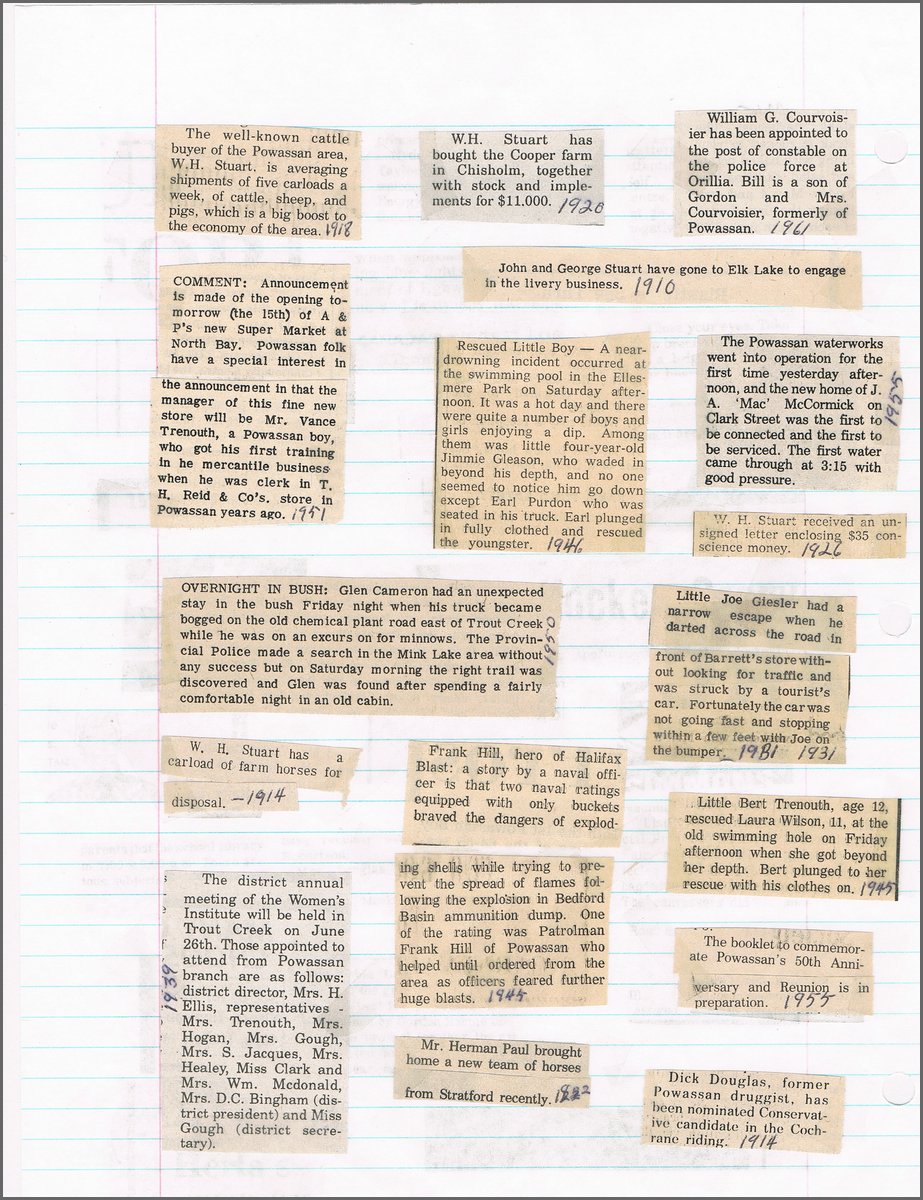 The well-known cattle
buyer of the Powassan area,
W.H. Stuart, is averaging
shipments of five carloads a
week, of cattle, sheep, and
pigs, which is a big boost to
the economy of the area. 1918
W.H. Stuart has
bought the Cooper farm
in Chisholm, together
with stock and imple-
ments for $11.000. 1920
William G. Courvois-
ier has been appointed to
the post of constable on
the police force at
Orillia. Bill is a son of
Gordon and Mrs.
Courvoisier, formerly of
Powassan. 1961
John and George Stuart have gone to Elk Lake to engage
in the livery business. 1910
COMMENT: Announcement
is made of the opening to-
morrow (the 15th) of A &
P's new Super Market at
North Bay. Powassan folk
have a special interest in
the announcement in that the
manager of this fine new
store will be Mr. Vance
Trenouth, a Powassan boy,
who got his first training
in he mercantile business
when he was clerk in T.
H. Reid & Co's. store in
Powassan years ago. 1951
Rescued Little Boy — A near-
drowning incident occurred at
the swimming pool in the Elles-
mere Park on Saturday after-
noon. It was a hot day and there
were quite a number of boys and
girls enjoying a dip. Among
them was little four-year-old
Jimmie Gleason, who waded in
beyond his depth, and no one
seemed to notice him go down
except Earl Purdon who was
seated in his truck. Earl plunged
in fully clothed and rescued
the youngster. 1946
The Powassan waterworks
went into operation for the
first time yesterday after-
noon, and the new home of J.
A. 'Mac' McCormick on
Clark Street was the first to
be connected and the first to
be serviced. The first water
came through at 3:15 with
good pressure.
1955
W. H. Stuart received an un-
signed letter enclosing $35 con-
science money. 1926
OVERNIGHT IN BUSH: Glen Cameron had an unexpected
stay in the bush Friday night when his truck became
bogged on the old chemical plant road east of Trout Creek
while he was on an excurs on for minnows. The Provin-
cial Police made a search in the Mink Lake area without
any success but on Saturday morning the right trail was
discovered and Glen was found after spending a fairly
comfortable night in an old cabin.
1950
Little Joe Giesler had a
narrow escape when he
darted across the road in
front of Barrett's store with-
out looking for traffic and
was struck by a tourist's
car. Fortunately the car was
not going fast and stopping
within a few feet with Joe on
the bumper. 1931 1931
W. H. Stuart has a
carload of farm horses for
disposal. — 1914
Frank Hill, hero of Halifax
Blast: a story by a naval offi-
cer is that two naval ratings
equipped with only buckets
braved the dangers of explod-
ing shells while trying to pre-
vent the spread of flames fol-
lowing the explosion in Bedford
Basin ammunition dump. One
of the rating was Patrolman
Frank Hill of Powassan who
helped until ordered from the
area as officers feared further
huge blasts. 1945
Little Bert Trenouth, age 12,
rescued Laura Wilson, 11, at the
old swimming hole on Friday
afternoon when she got beyond
her depth. Bert plunged to her
rescue with his clothes on. 1945
The district annual
meeting of the Women's
Institute will be held in
Trout Creek on June
26th. Those appointed to
attend from Powassan
branch are as follows:
district director, Mrs. H.
Ellis, representatives -
Mrs. Trenouth, Mrs.
Hogan, Mrs. Gough,
Mrs. S. Jacques, Mrs.
Healey, Miss Clark and
Mrs. Wm. Mcdonald,
Mrs. D.C. Bingham (dis-
trict president) and Miss
Gough (district secre-
tary).
1939
The booklet to commemor-
ate Powassan's 50th Anni-
versary and Reunion is in
preparation. 1955
Mr. Herman Paul brought
home a new team of horses
from Stratford recently.
Dick Douglas, former
Powassan druggist, has
been nominated Conservat-
ive candidate in the Coch-
rane riding. 1914